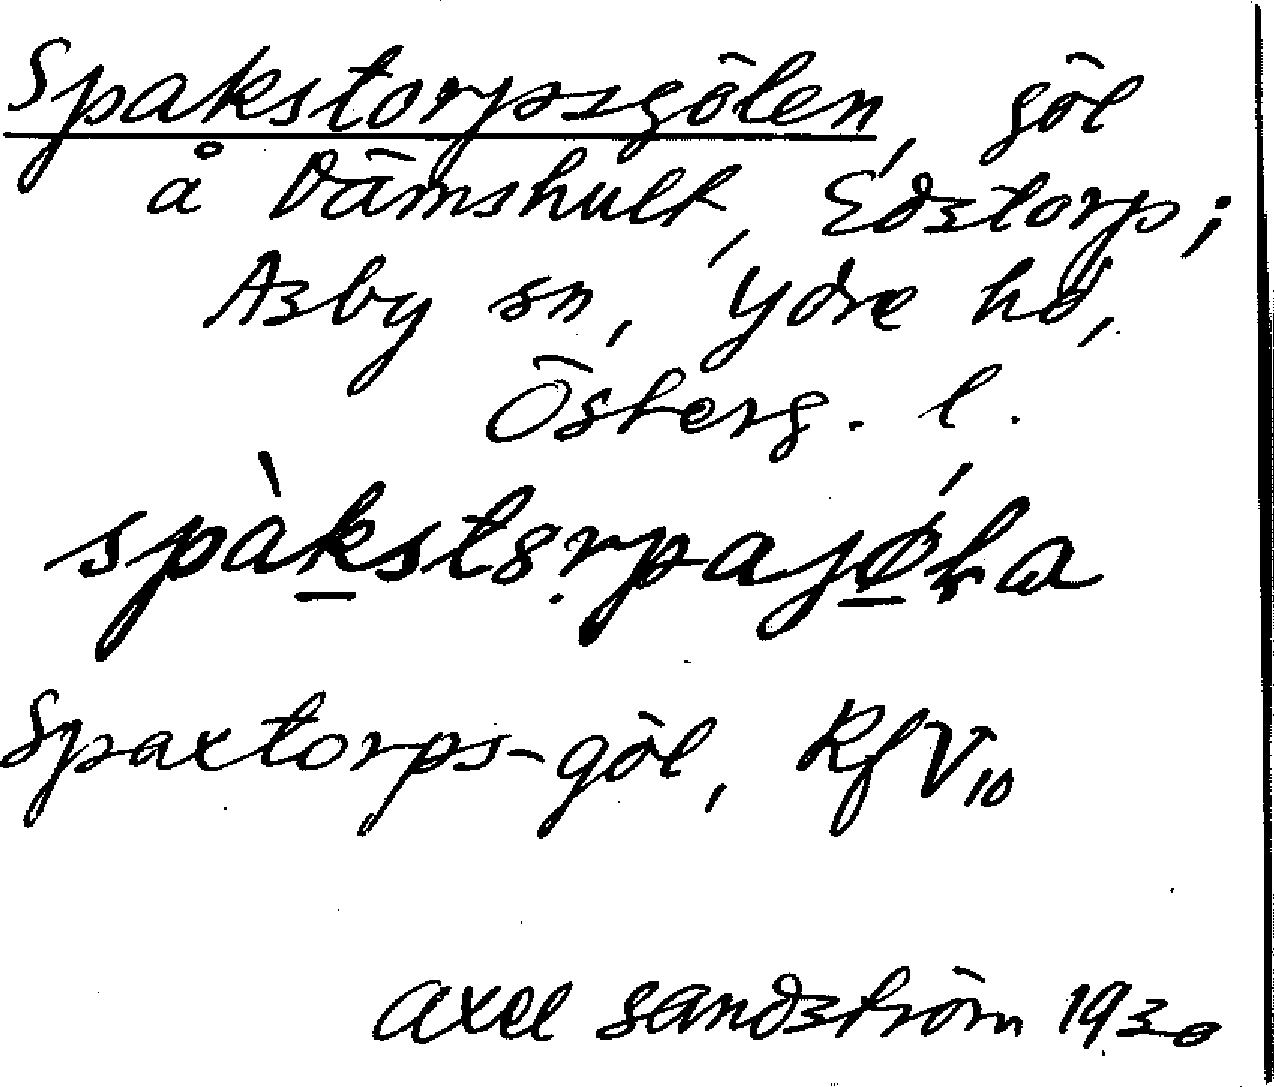 Spakstorpsgölen, göl
å Dämshult, Edstorp;
Asby sn, Ydre hd,
Österg. l.
Spaxtorps-göl, Rf V 10
Axel Sandström 1930